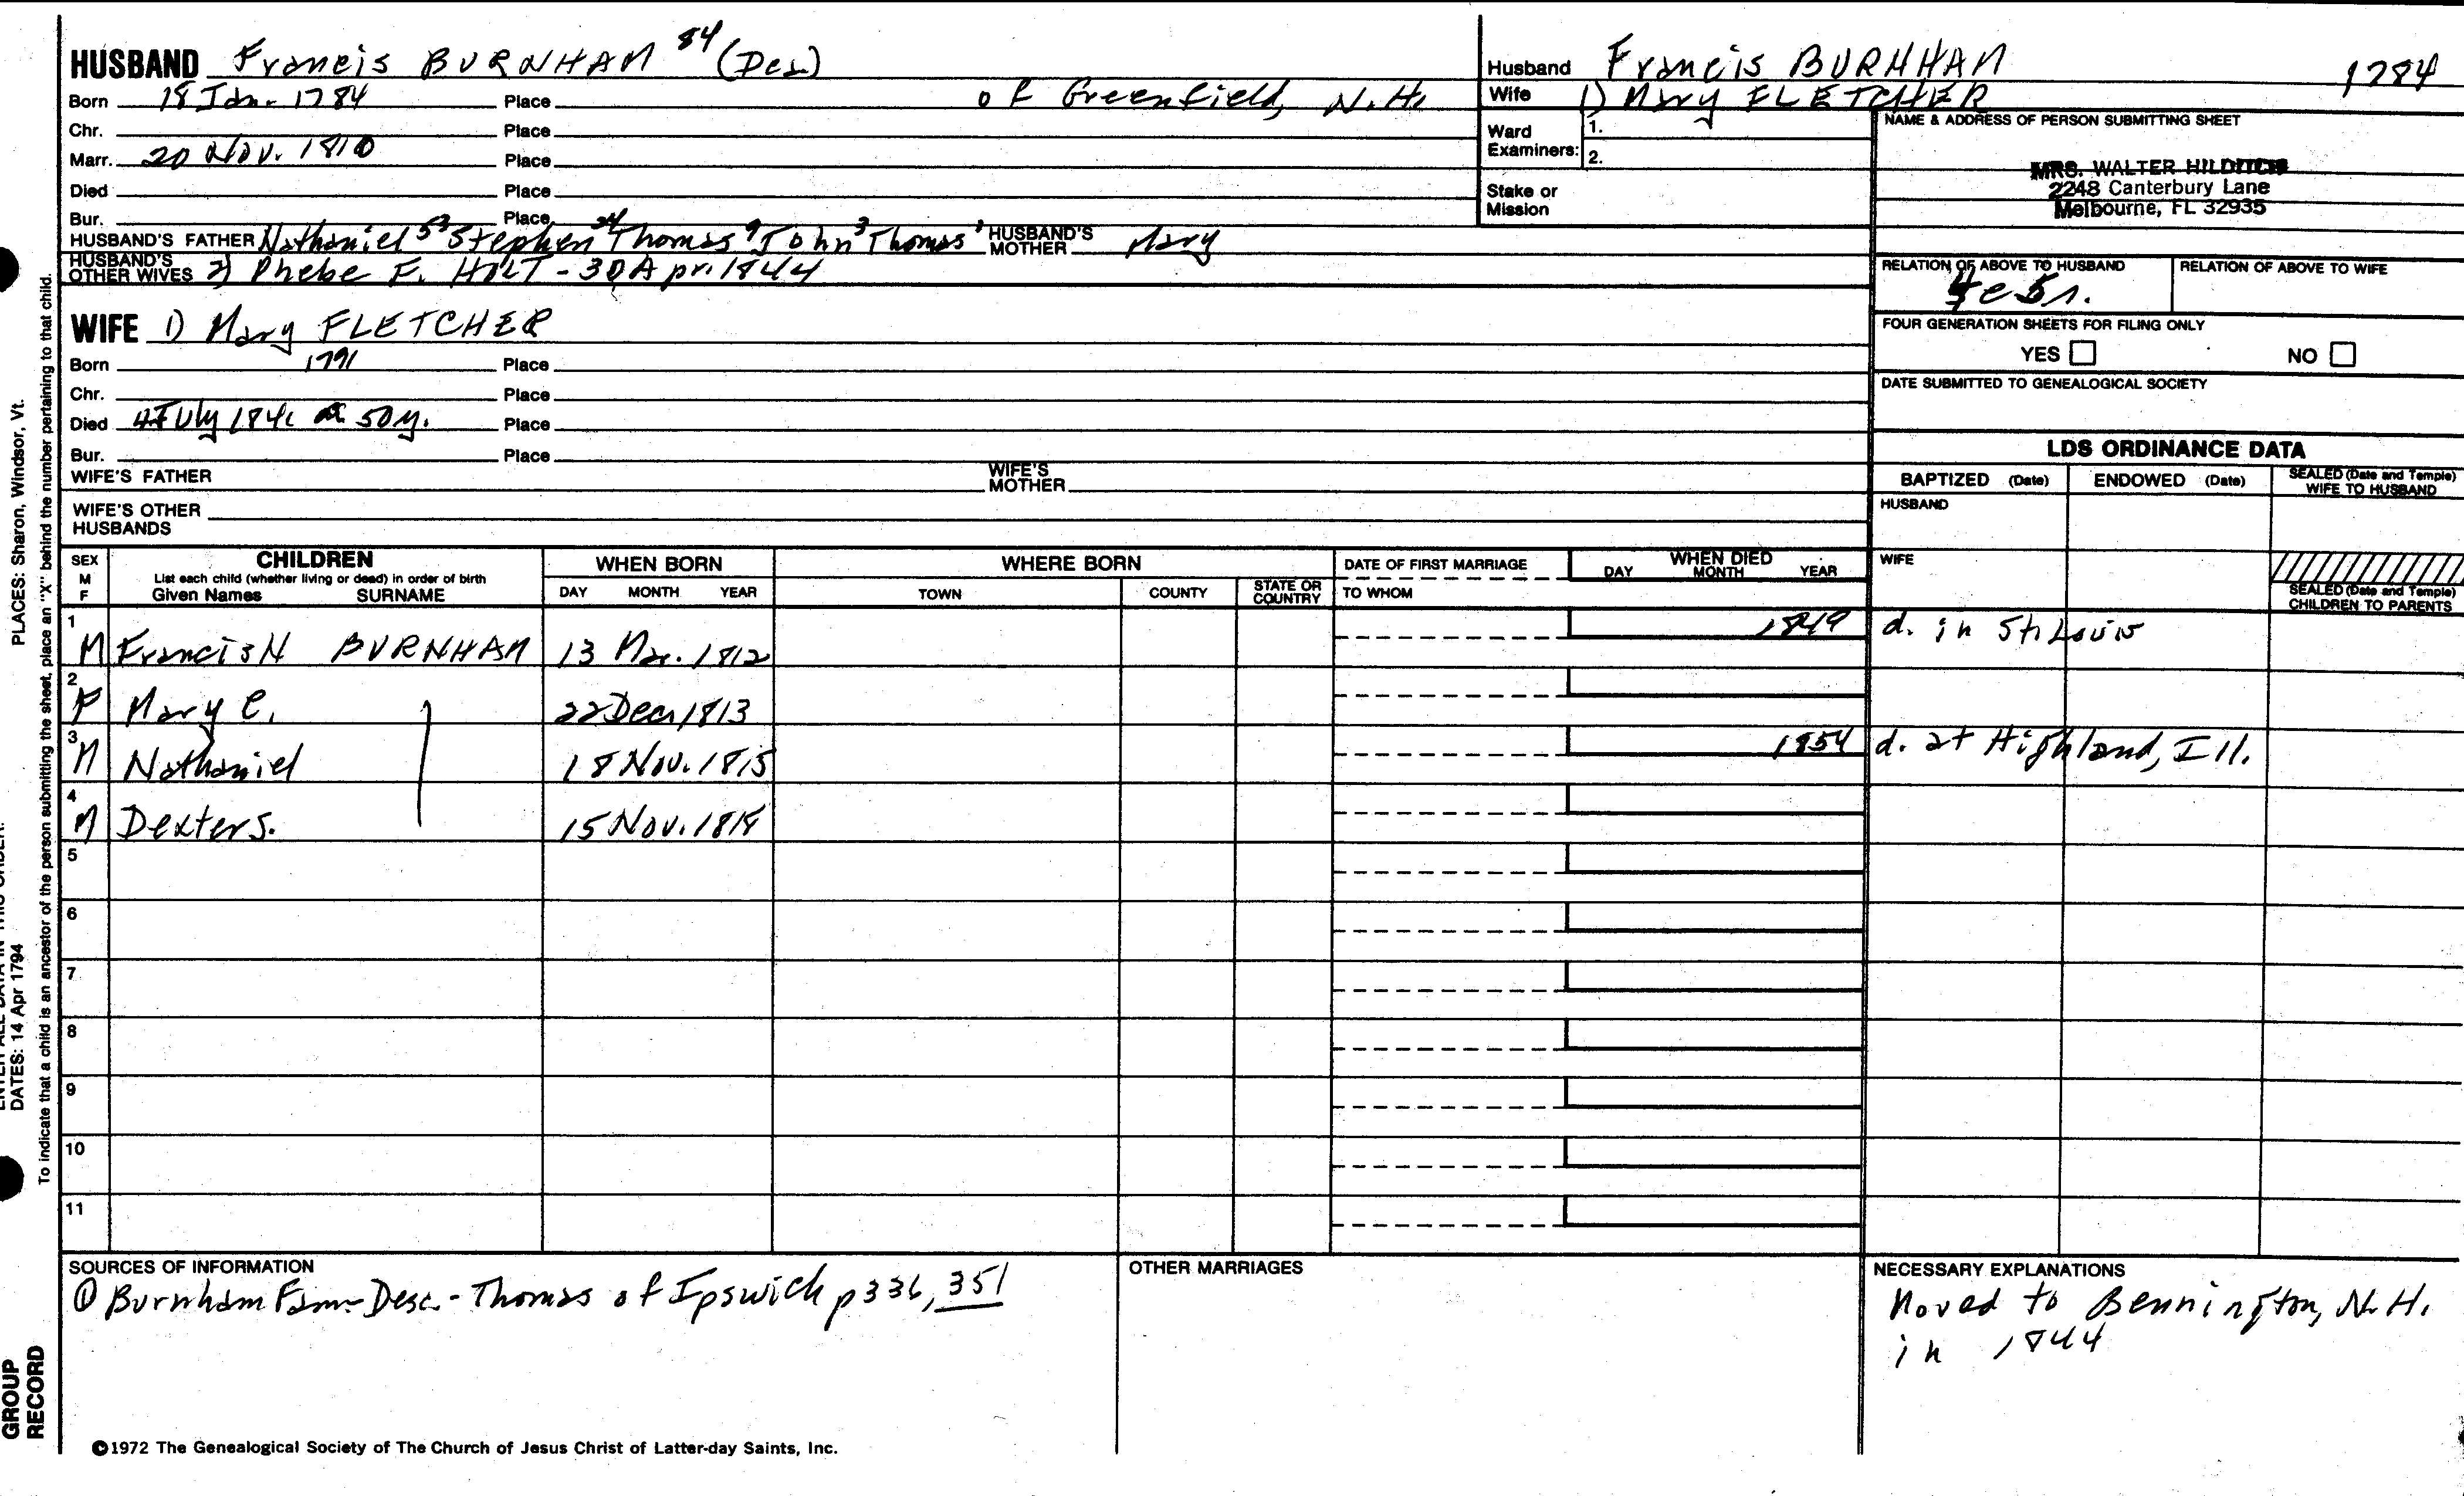 HUSBAND Francis BURNHAM 84
Born 18 Jan. 1784 Place of Greenfield, N.H.
Chr. Place
Marr. 20 Nov. 1810 Place
Died Place
Bur. Place
HUSBAND'S FATHER Nathaniel 53 Stephen 24 Thomas 9 John 3 Thomas 1 HUSBAND'S MOTHER Mary
HUSBAND'S OTHER WIVES 2) Phebe F. HOLT - 30 Apr. 1844
WIFE 1) Mary FLETCHER
Born 1791 Place
Chr. Place
Died 4 July 1841 50 y. Place
Bur. Place
WIFE'S FATHER WIFE'S MOTHER
WIFE'S OTHER HUSBANDS
Husband Francis BURNHAM 1784
Wife 1) Mary FLETCHER
Ward Examiners: 1.
2.
Stake or Mission
NAME & ADDRESS OF PERSON SUBMITTING SHEET
MRS. WALTER HILDITCH
2248 Canterbury Lane
Melbourne, FL 32935
RELATION OF ABOVE TO HUSBAND RELATION OF ABOVE TO WIFE
FOUR GENERATION SHEETS FOR FILING ONLY
YES NO
DATE SUBMITTED TO GENEALOGICAL SOCIETY
LDS ORDINANCE DATA
BAPTIZED (Date) ENDOWED (Date) SEALED (Date and Temple) WIFE TO HUSBAND
HUSBAND
WIFE
SEALED (Date and Temple) CHILDREN TO PARENTS
SEX M F
CHILDREN
List each child (whether living or dead) in order of birth
Given Names SURNAME
WHEN BORN
DAY MONTH YEAR
WHERE BORN
TOWN COUNTY STATE OR COUNTRY
DATE OF FIRST MARRIAGE
TO WHOM
WHEN DIED
DAY MONTH YEAR
1 M Francis N BURNHAM 13 Mar. 1812 1849 d. in St. Louis
2 F Mary C. 22 Dec. 1813
3 M Nathaniel 18 Nov. 1815 1854 d. at Highland, Ill.
4 M Dexter S. 15 Nov. 1818
5
6
7
8
9
10
11
SOURCES OF INFORMATION
① Burnham Fam - Desc. - Thomas of Ipswich p 336, 351
OTHER MARRIAGES
NECESSARY EXPLANATIONS
Moved to Bennington, N.H.
in 1844
©1972 The Genealogical Society of The Church of Jesus Christ of Latter-day Saints, Inc.
To indicate that a child is an ancestor of the person submitting the sheet, place an "X" behind the number pertaining to that child.
PLACES: Sharon, Windsor, Vt.
DATES: 14 Apr 1794
GROUP
RECORD